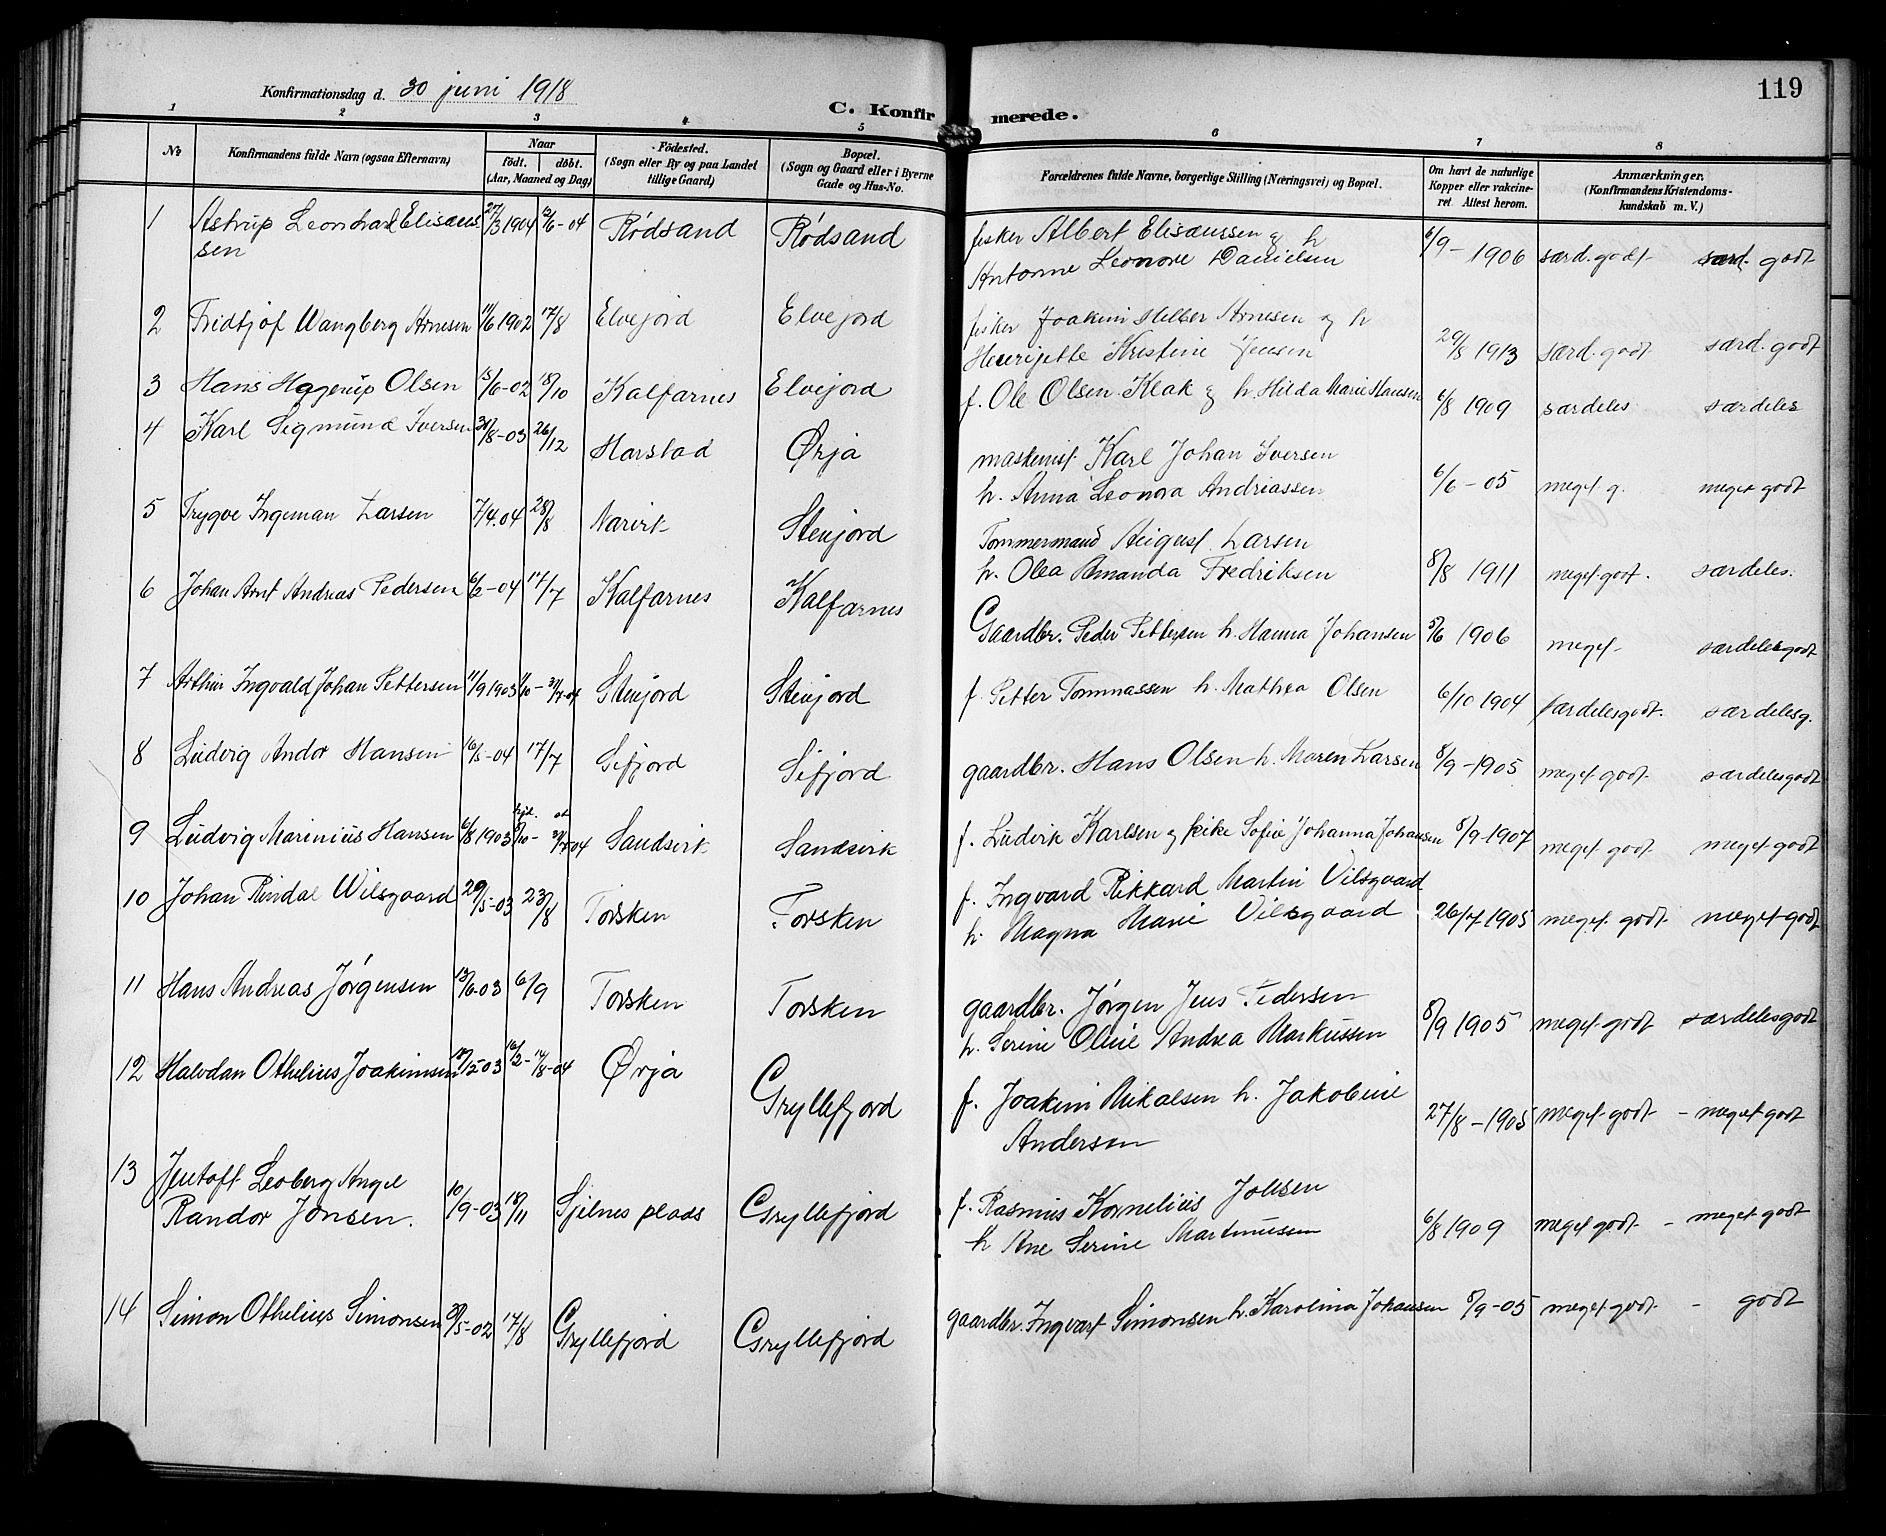 119
Konfirmationsdag d. 30 juni 1918
C. Konfirmerede.
1 2 3 4 5 6 7 8
No
Konfirmandens fulde Navn (ogsaa Efternavn)
Naar
födt. döbt.
(Aar, Maaned og Dag)
Födested.
(Sogn eller By og paa Landet
tillige Gaard)
Bopæl.
(Sogn og Gaard eller i Byerne
Gade og Hus-No.
Forældrenes fulde Navne, borgerlige Stilling (Næringsvei) og Bopæl.
Om havt de naturlige
Kopper eller vakcine-
ret. Attest herom.
Anmærkninger.
(Konfirmandens Kristendoms-
kundskab m. V.)
1 Astrup Leonhard Elisæus- 27/3 1904 12/6-04 Rødsand Rødsand fisker Albert Elisæussen og h 6/9 - 1906 særd. godt særd. godt
sen Antonne Leonore Danielsen
2 Fridtjof Wangberg Arnesen 11/6 1902 17/8 Elvejord Elvejord fisker Joakim Arnesen og h 29/8 1913 særd. godt særd. godt
Henrijette Kristine Jensen
3 Hans Hagerup Olsen 15/6-02 18/10 Kalfarnes Elvejord f. Ole Olsen Klak og h. Hilda Marie Hansen 6/8 1909 særdeles særdeles
4 Karl Sigmund Iversen 30/8-03 26/12 Harstad Ørja maskinist Karl Johan Iversen
h. Anna Leonora Andriassen 6/6-05 meget g. meget godt
5 Trygve Ingeman Larsen 7/4.04 28/8 Narvik Stenjord Tømmermand August Larsen
h. Olea Amanda Fredriksen 8/8 1911 meget godt. særdeles.
6 Johan Arnt Andreas Pedersen 6/2-04 17/7 Kalfarnes Kalfarnes Gaardbr. Peder Pettersen h. Hanna Johansen 5/6 1906 meget særdelesgodt
7 Arthur Ingvald Johan Pettersen 11/9 1903 Stenjord Stenjord f. Petter Tommassen h. Mathea Olsen 6/10 1904 særdelesgodt. særdelesg.
8 Ludvig Andor Hansen 16/5-04 17/7 Sifjord Sifjord gaardbr. Hans Olsen h. Maren Larsen 8/9-1905 meget godt særdelesgodt
9 Ludvig Marinius Hansen 6/8 1903 Sandsvik Sandsvik f. Ludvik Karlsen og pike Sofie Johanna Johansen 8/9-1907 meget godt meget godt
10 Johan Rindal Wilsgaard 29/5-03 23/8 Torsken Torsken f. Ingvard Rikkard Martin Vilsgaard
h. Magna Marie Vilsgaard 26/7 1905 meget godt meget godt
11 Hans Andreas Jørgensen 13/6-03 6/9 Torsken Torsken gaardbr. Jørgen Jens Pedersen
h. Serine Oline Andrea Markussen 8/9 1905 meget godt særdelesgodt
12 Halvdan Othelius Joakimsen Ørja Gryllefjord f. Joakim Mikalsen h. Jakobine
Andersen 27/8-1905 meget godt - meget godt
13 Jentoft Leoberg Angel
Randor Jonsen. 10/9-03 18/11 Sjelnes plads Gryllefjord f. Rasmus Kornelius Johsen
h Ane Serine Martinussen 6/8 1909 meget godt - meget godt
14 Simon Othelius Simonsen 30/5-02 17/8 Gryllefjord Gryllefjord gaardbr. Ingvart Simonsen h. Karolina Johansen 8/9-05 meget godt - godt